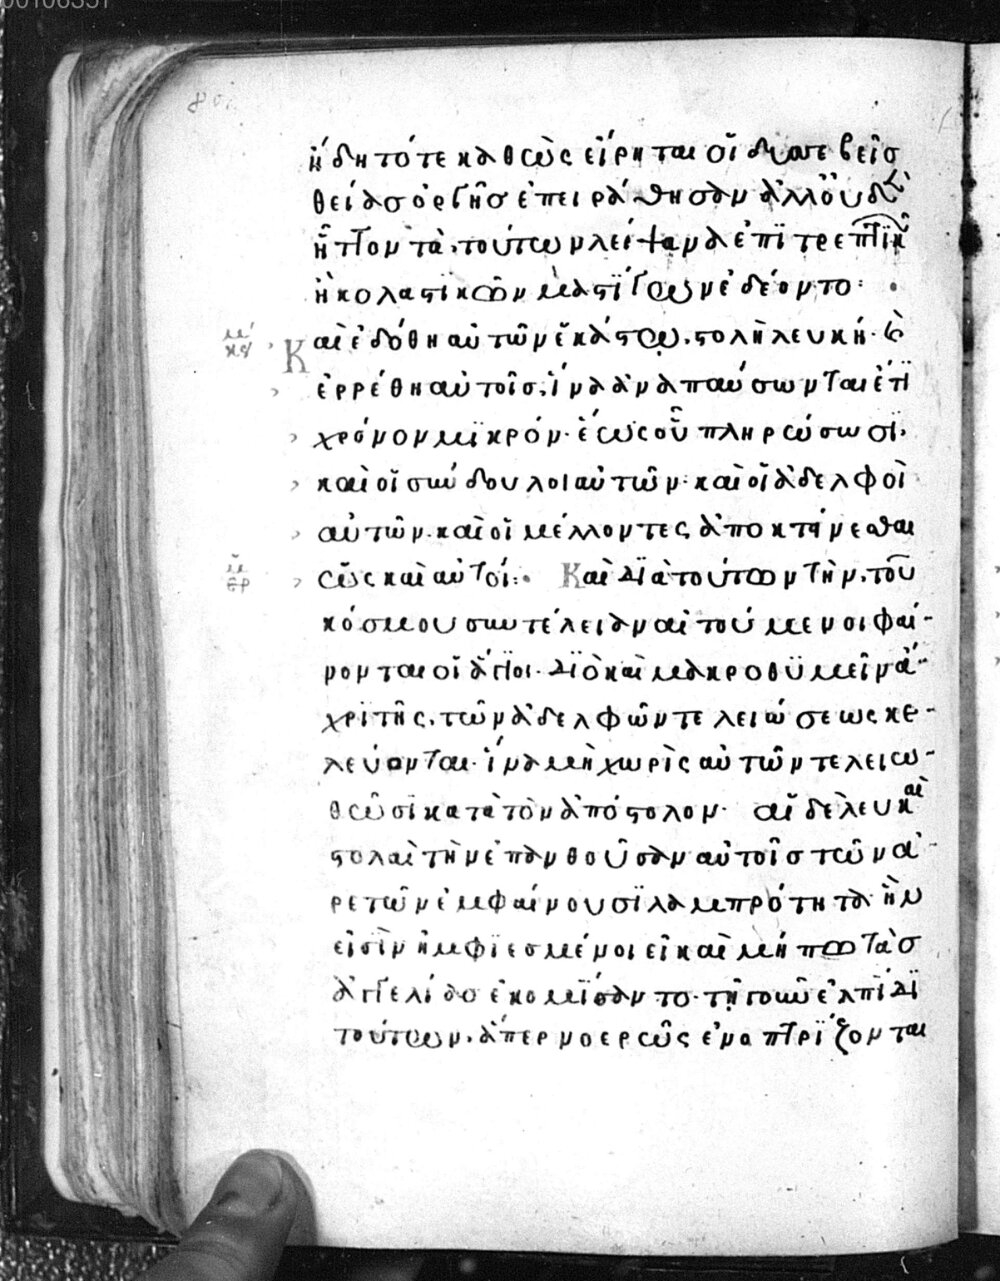 ἤδη τότε καθὼς εἴρηται οἱ δυσσεβεῖς
θείας ὀργῆς ἐπειράθησαν ἀλλ' οὐδὲ
ἧττον τὰ τούτων λείψανα ἐπιτρεπτικῶν
ἢ κολαστικῶν μαστίγων ἐδέοντο:
Καὶ ἐδόθη αὐτῶν ἑκάστῳ, στολὴ λευκή· καὶ
ἐρρέθη αὐτοῖς, ἵνα ἀναπαύσωνται ἔτι
χρόνον μικρόν· ἕως οὗ πληρώσωσι,
καὶ οἱ σύνδουλοι αὐτῶν· καὶ οἱ ἀδελφοὶ
αὐτῶν· καὶ οἱ μέλλοντες ἀποκτένεσθαι
ὡς καὶ αὐτοί:· Καὶ διὰ τούτων τὴν, τοῦ
κόσμου συντέλειαν αἰτούμενοι φαί-
νονται οἱ ἅγιοι· διὸ καὶ μακροθυμεῖν ἄ-
χρι τῆς, τῶν ἀδελφῶν τελειώσεως κε-
λεύονται· ἵνα μὴ χωρὶς αὐτῶν τελειω-
θῶσι κατὰ τὸν ἀπόστολον· αἱ δὲ λευκαὶ
στολαὶ τὴν ἐπανθοῦσαν αὐτοῖς τῶν ἀ-
ρετῶν ἐμφαίνουσι λαμπρότητα· ἣν
εἰσὶν ἠμφιεσμένοι εἰ καὶ μήπω τὰς
ἀγγελίας ἐκομίσαντο· τῇ γοῦν ἐλπίδι
τούτων, ἅπερ νοερῶς ἐνοπτρίζονται